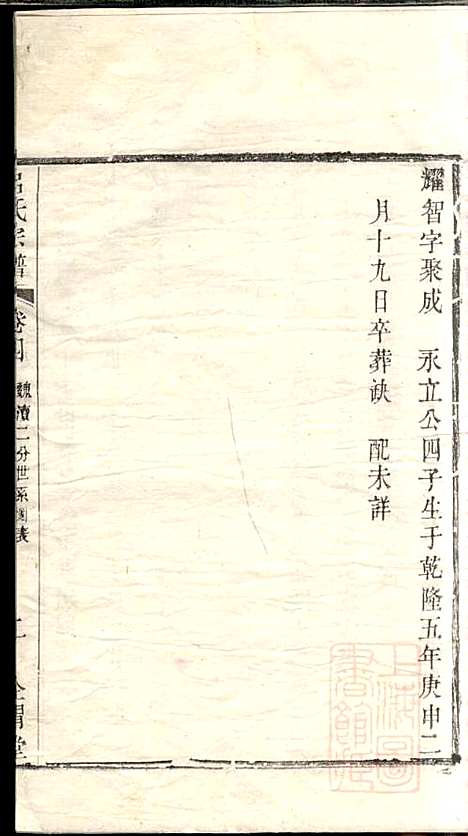 耀智字聚成　永立公四子生于乾隆五年庚申二
月十九日卒葬缺　配未詳
呂氏宗譜
卷四
二分世系圖表
上海圖
書館藏